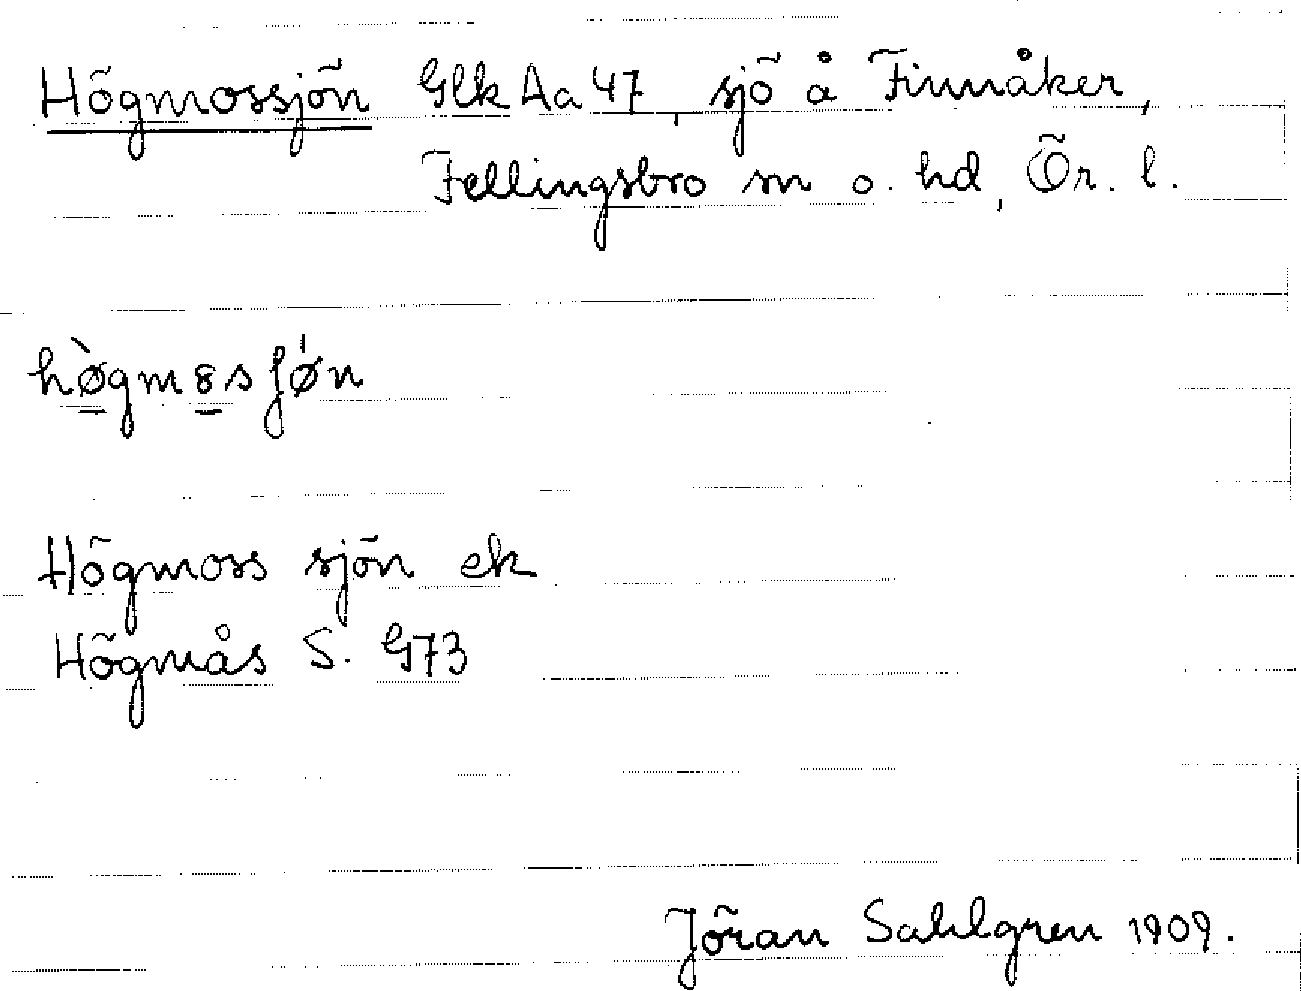 Högmossjön GlkAa47, sjö å Finnåker,
Fellingsbro sn o. hd, Ör. l.
hø̀gm8sʃǿn
Högmoss sjön ek
Högmås S. G73
Jöran Sahlgren 1909.